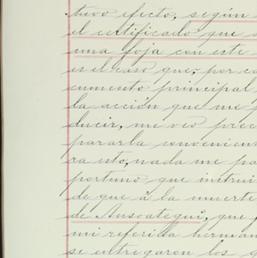 tuvo efecto, según
el certificado que
una foja con este
es el caso que, por ca
cumento principal
la acción que me
ducir, me veo prec
pararla convenien
ra esto, nada me pa
portuno que instrui
de que á la muerte
de Ansoategui, que
mi referida herman
se entregaron los